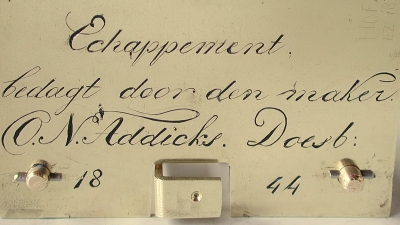 Echappement.
bedagt door den maker.
O.N. Addicks. Doesb:
18 44